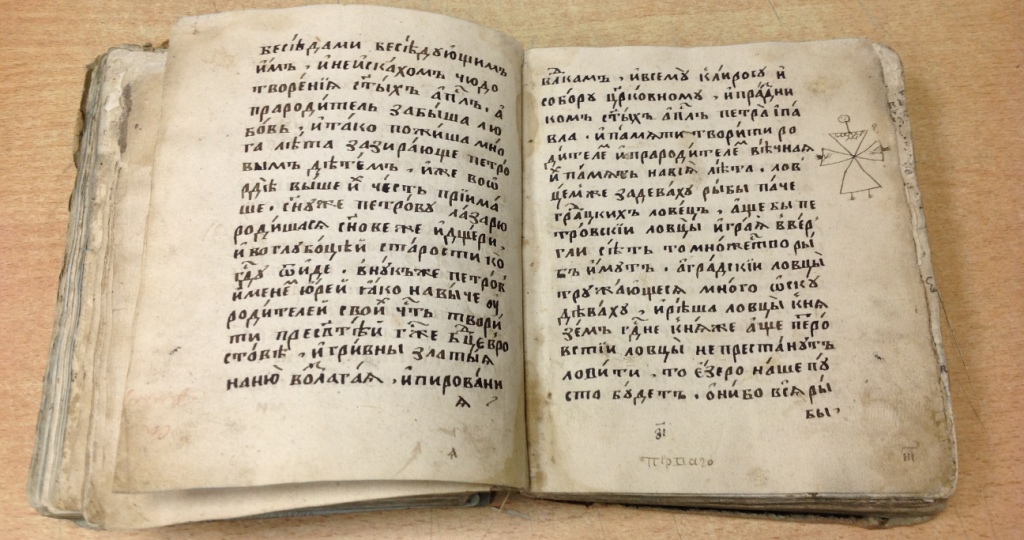 бесѣдами бесѣдующимъ
имъ, и неискахомъ чюдо
творенїя ст҃ыхъ ап҃лъ. а
прародитель забыша лю
бовь, и тако пожиша мно
га лѣта зазирающе петро
вымъ дѣтемъ, иже во ѿ
рдѣ выше и҆ честь прїима
ше. сн҃у же петрову лазарю
родишася сн҃ове же и дщери,
и во глубоцѣй старости ко
гд҃у ѿиде. внукъ же петров
именемъ юрей яко навыче оу
родителей своихъ чт҃ь твори
ти прест҃ѣй гж҃е бц҃е в ро
стовѣ, и гривны златыя
на ню возлагая, и пировани
я
вл҃камъ, и всему клиросу и
собору цр҃ковному, и празни
комъ ст҃ыхъ ап҃лъ петра і па
вла. и памяти творити ро
дителем и прародителем вѣчная
и память на вся лѣта. лов
цем же задеваху рыбы паче
градцкихъ ловецъ, аще бы пе
тровскїи ловцы играя ввер
гли сѣть то множество ры
бъ имутъ. а градскїи ловцы
тружающеся много ѡску
дѣваху, и рѣша ловцы кня
земъ гд҃не княже аще петро
встїи ловцы не престанутъ
ловити, то езеро наше пу
сто будетъ. они бо вся ры
бы.
перваго